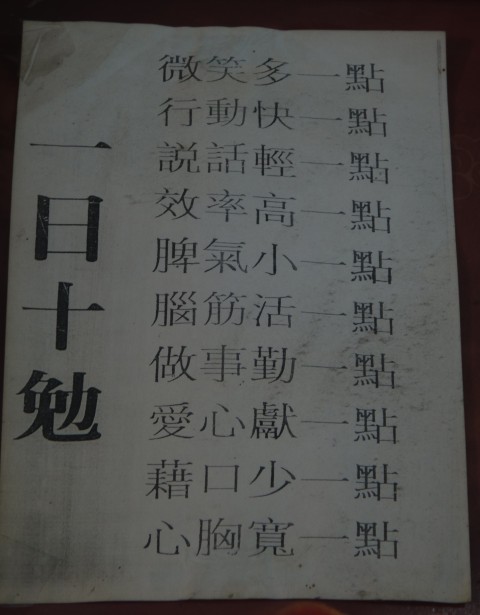 一日十勉
微笑多一點
行動快一點
說話輕一點
效率高一點
脾氣小一點
腦筋活一點
做事勤一點
愛心獻一點
藉口少一點
心胸寬一點